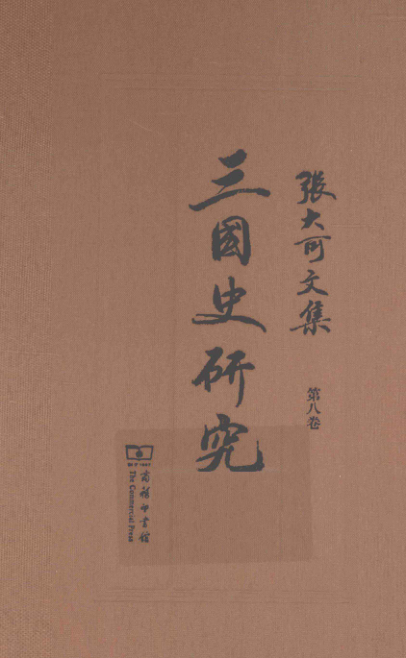 張大可文集
第八卷
三國史研究
商務印書館
The Commercial Press